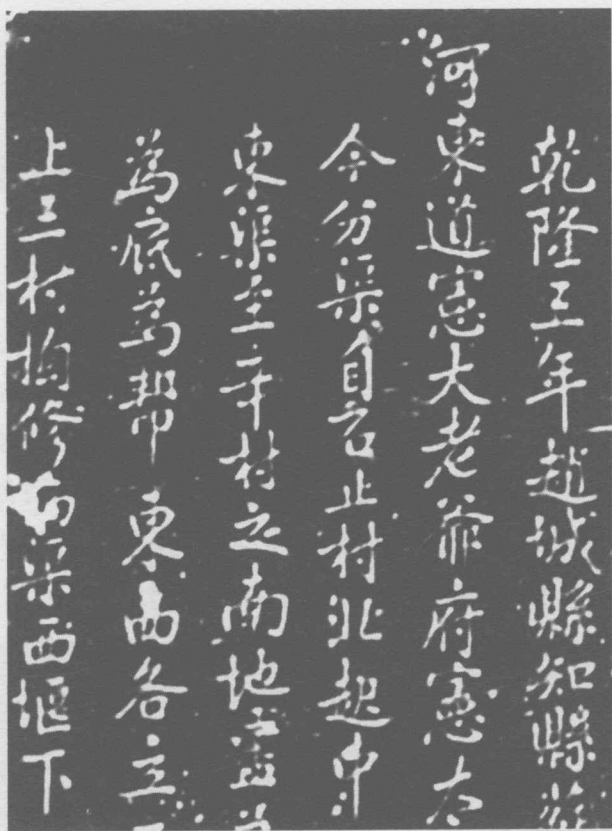 乾隆五年趙城縣知縣
河東道憲大老爺府憲大
今分渠自石止村北起中
東渠至辛村之南地畝
為底為幫東西各立
上三村拘修南渠西堰下